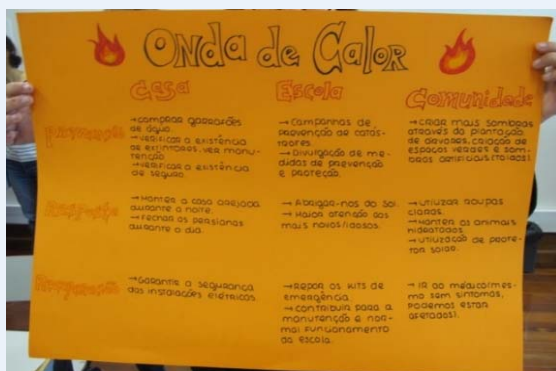 Onda de Calor
Casa Escola Comunidade
→ comprar garrafões
de água.
→ verificar a existência
de extintores, ver manu-
tenção
→ verificar a existência
de seguro.
→ campanhas de
prevenção de catás-
trofes.
→ Divulgação de me-
didas de prevenção
e proteção.
→ criar mais sombras
através da plantação
de árvores, criação de
espaços verdes e som-
bras artificiais (toldos).
→ Manter a casa arejada
durante a noite.
→ Fechar as persianas
durante o dia.
→ Abrigar-nos do sol.
→ Maior atenção aos
mais novos/idosos.
→ utilizar roupas
claras.
→ Manter os animais
hidratados
→ utilização de prote-
tor solar.
→ Garantir a segurança
das instalações elétricas.
→ Repor os kits de
emergência.
→ contribuir para a
manutenção e nor-
mal funcionamento
da escola.
→ Ir ao médico (mes-
mo sem sintomas,
podemos estar
afetados).